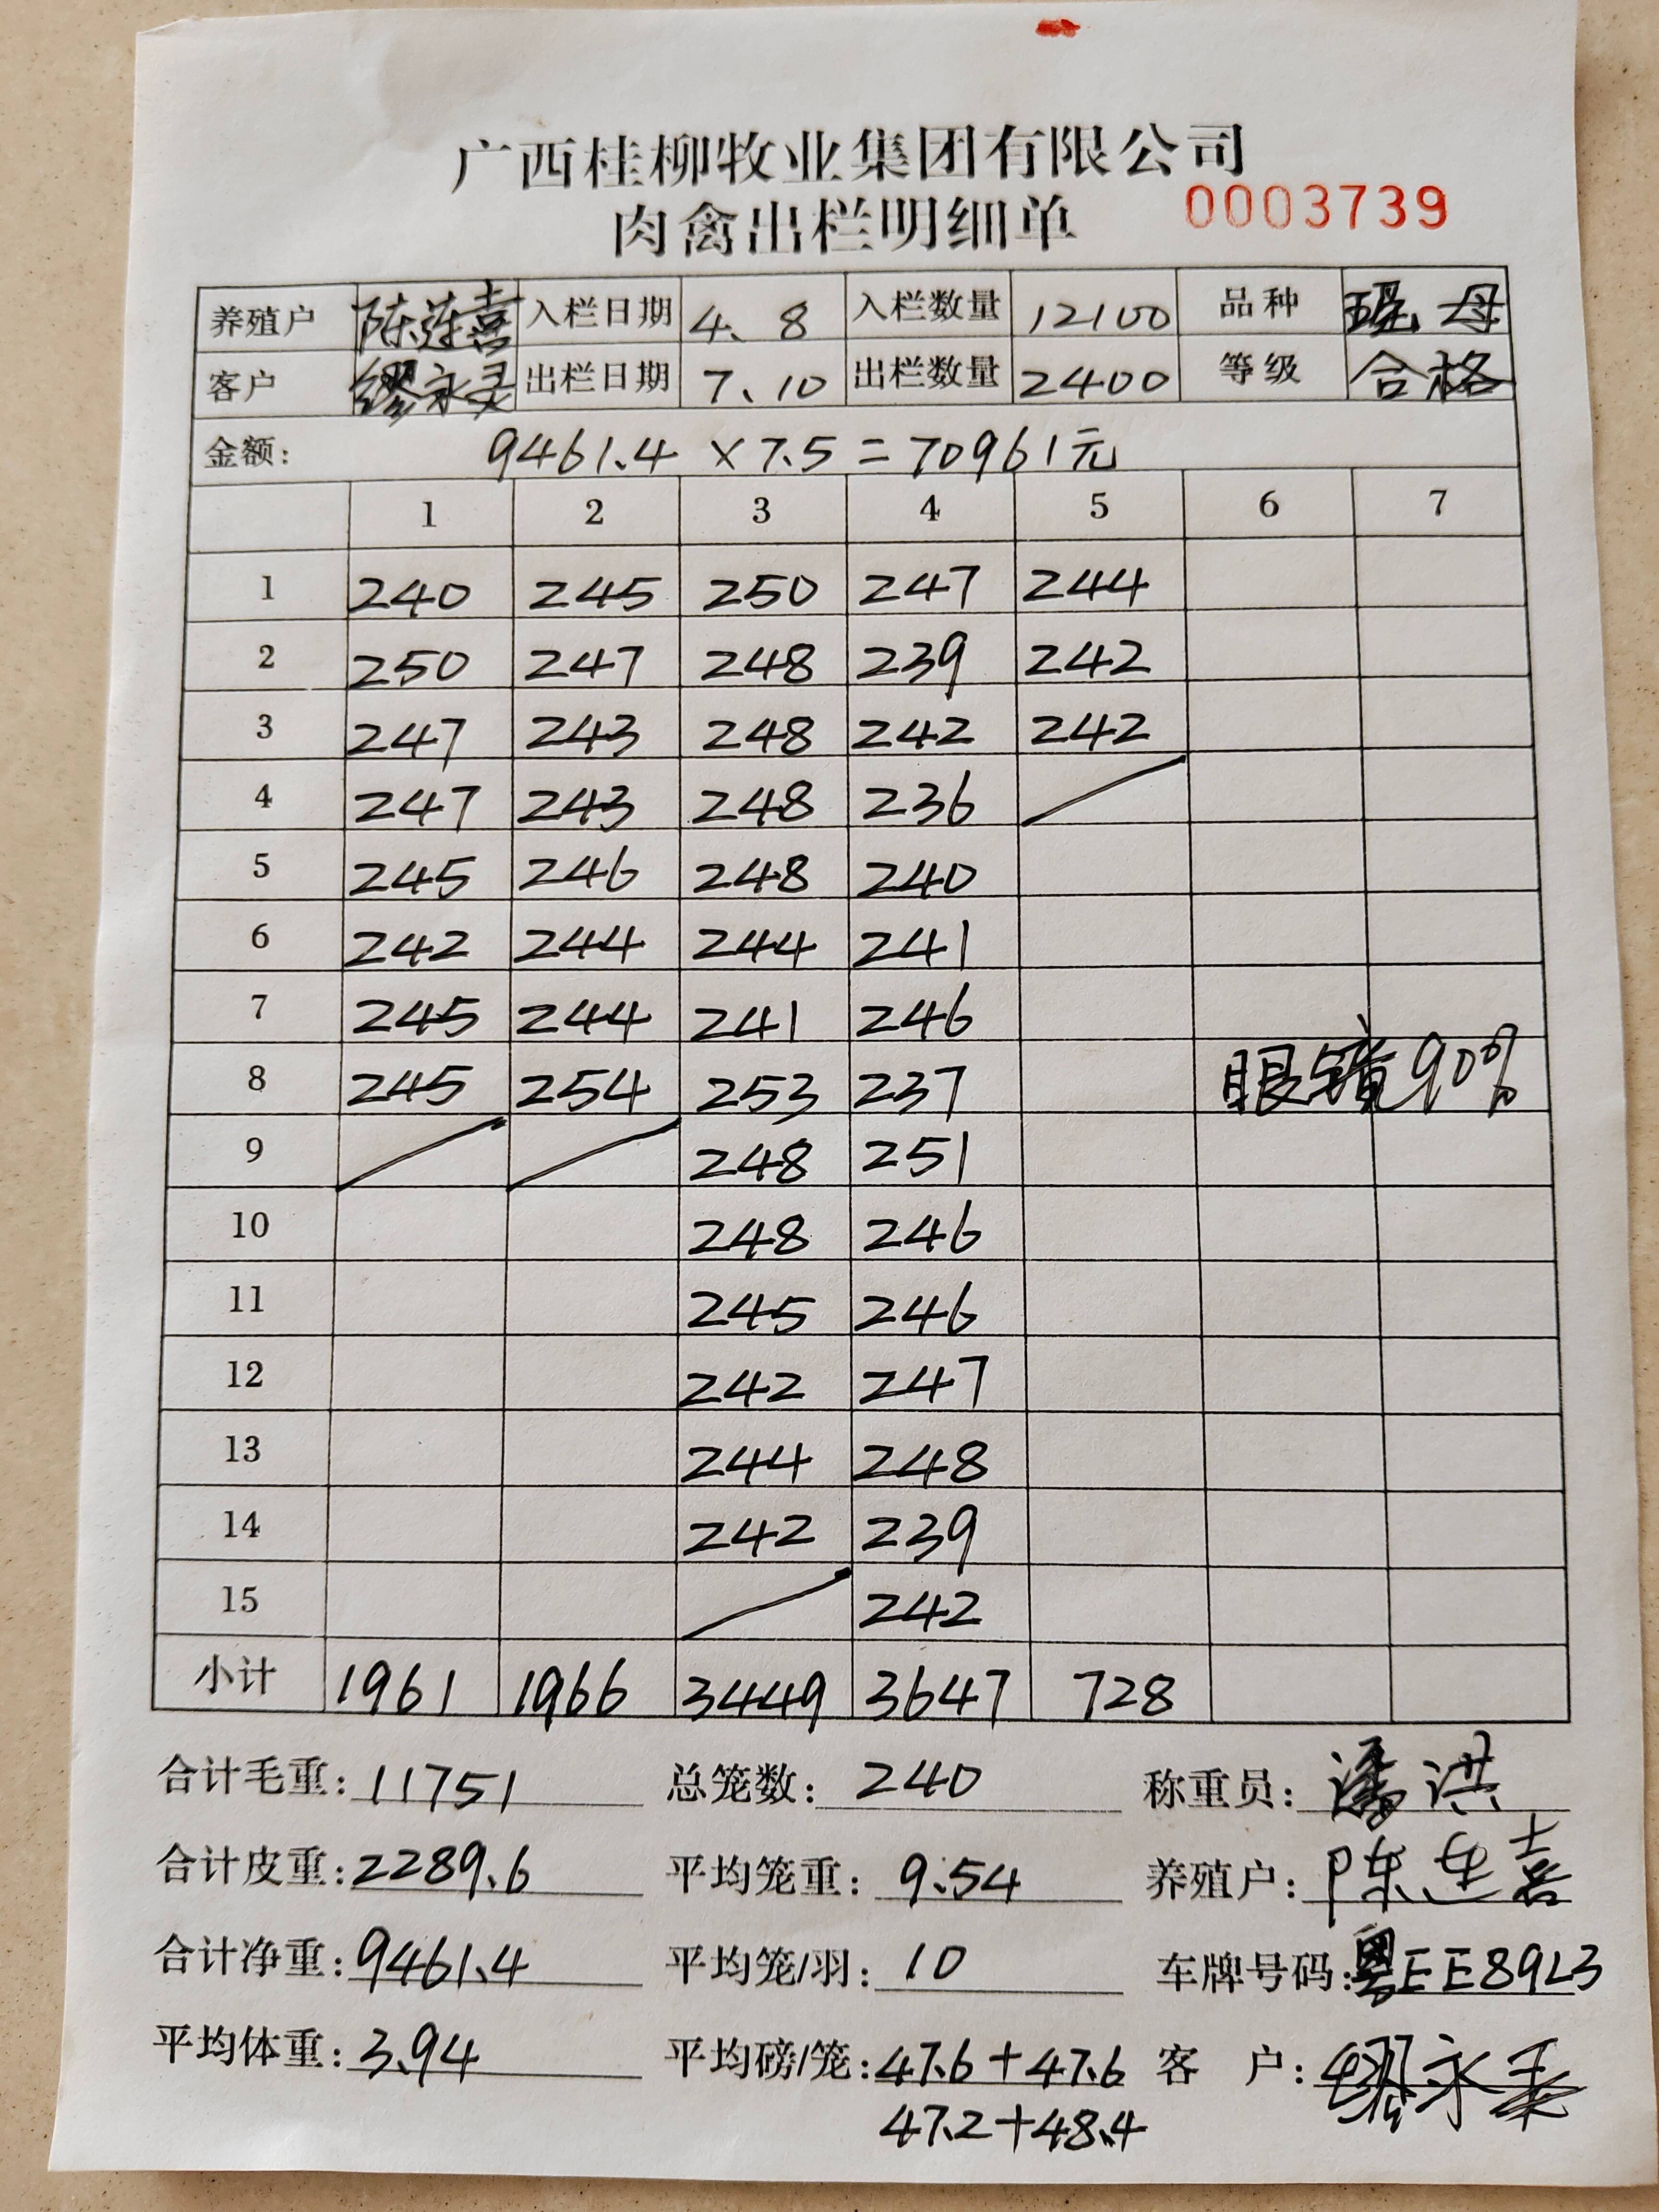 广西桂柳牧业集团有限公司
肉禽出栏明细单 0003739
养殖户 陈莲喜 入栏日期 4、8 入栏数量 12100 品种 母
客户 缪永 出栏日期 7、10 出栏数量 2400 等级 合格
金额: 9461.4 × 7.5 = 70961元
1 2 3 4 5 6 7
1 240 245 250 247 244
2 250 247 248 239 242
3 247 243 248 242 242
4 247 243 248 236
5 245 246 248 240
6 242 244 244 241
7 245 244 241 246
8 245 254 253 237 眼镜90%
9 248 251
10 248 246
11 245 246
12 242 247
13 244 248
14 242 239
15 242
小计 1961 1966 3449 3647 728
合计毛重: 11751 总笼数: 240 称重员: 潘洪
合计皮重: 2289.6 平均笼重: 9.54 养殖户: 陈连喜
合计净重: 9461.4 平均笼/羽: 10 车牌号码: 粤EE89L3
平均体重: 3.94 平均磅/笼: 47.6+47.6 客 户: 缪永
47.2+48.4